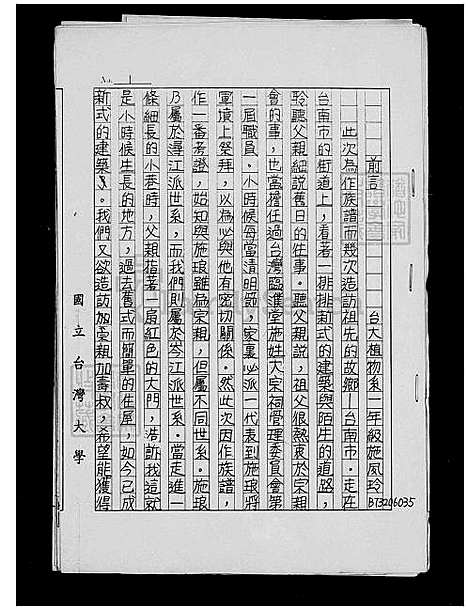 No. 1
前言
台大植物系一年級施風玲
B73206035
此次為作族譜而幾次造訪祖先的故鄉—台南市。走在
台南市的街道上，看著一排排新式的建築與陌生的道路，
聆聽父親細說舊日的往事。聽父親說，祖父很熱衷於宗親
會的事，也當擔任過台灣臨濮堂施姓大宗祠管理委員會第
一屆職員。小時候每當清明節，家裏必派一代表到施琅將
軍墳上祭拜，以為必與他有密切關係。然此次因作族譜，
作一番考證，始知與施琅雖為宗親，但屬不同世系。施琅
乃屬於潯江派世系，而我們則屬於岑江派世系。當走進一
條細長的小巷時，父親指著一扇紅色的大門，告訴我這就
是小時候生長的地方，過去舊式而簡單的住屋，如今已成
新式的建築了。我們又欲造訪宗親加壽叔，希望能獲得
國立台灣大學